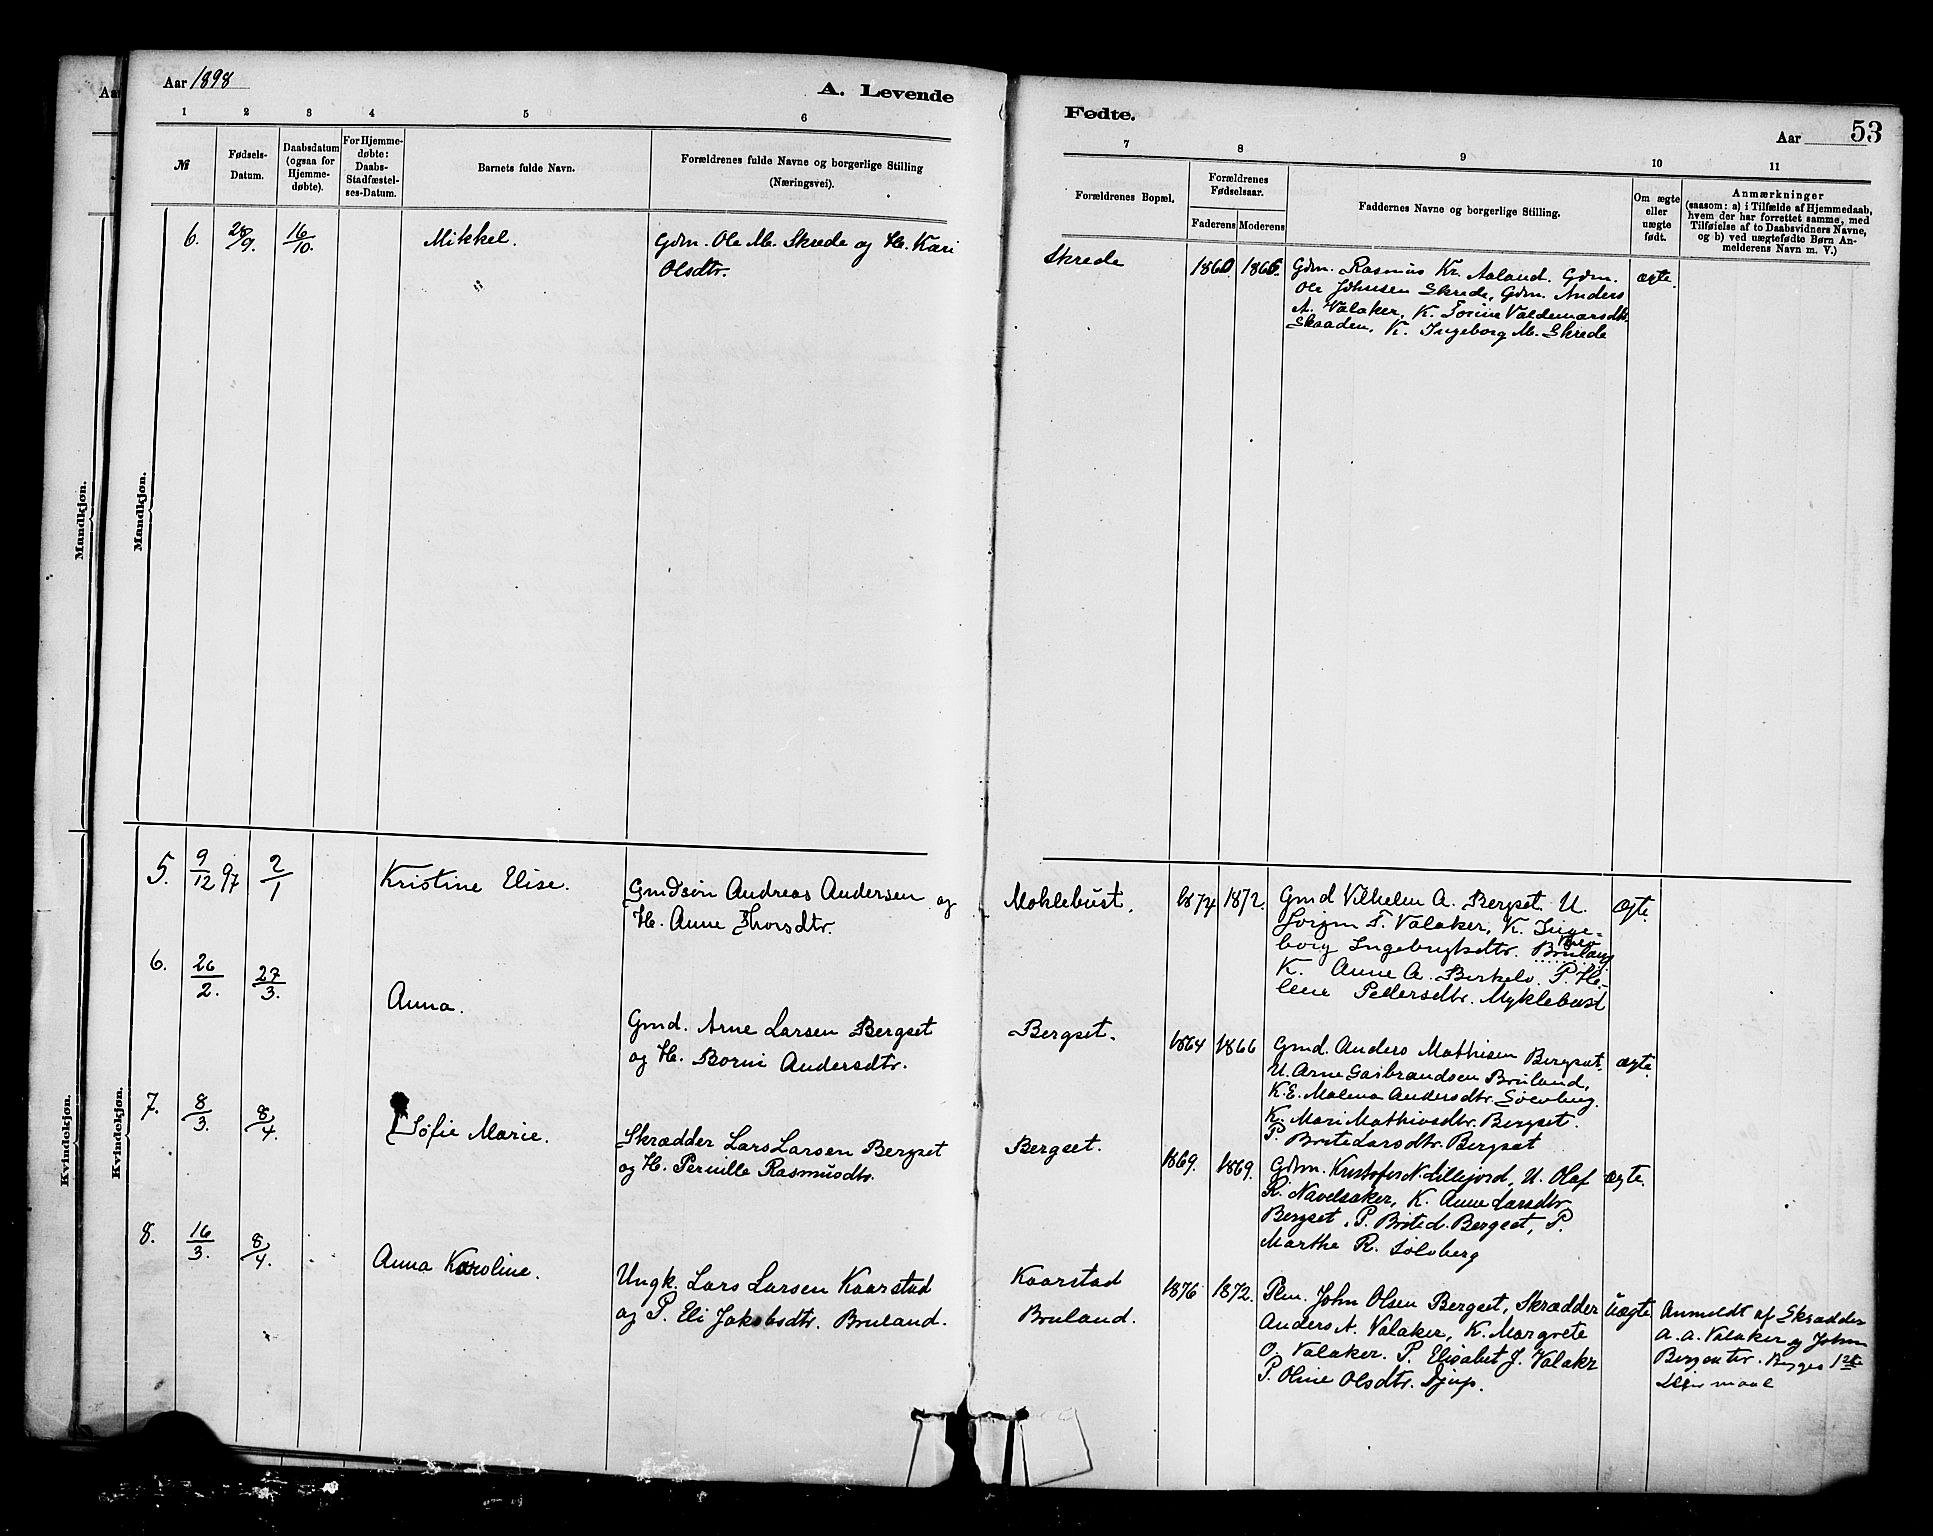 Aar 1898
A. Levende
Fødte.
Aar 53
1 2 3 4 5 6
7 8 9 10 11
№
Fødsels-
Datum.
Daabsdatum
(ogsaa for
Hjemme-
døbte).
For Hjemme-
døbte:
Daabs-
Stadfæstel-
ses-Datum.
Barnets fulde Navn.
Forældrenes fulde Navne og borgerlige Stilling
(Næringsvei).
Forældrenes Bopæl.
Forældrenes
Fødselsaar.
Faderens Moderens
Faddernes Navne og borgerlige Stilling.
Om ægte
eller
uægte
født.
Anmærkninger
(saasom: a) i Tilfælde af Hjemmedaab,
hvem der har forrettet samme, med
Tilføielse af to Daabsvidners Navne,
og b) ved uægtefødte Børn An-
melderens Navn m. V.)
Mandkjøn.
Mandkjøn.
6. 28/9. 16/10. Mikkel.
Gdm. Ole M. Skrede og H. Kari
Olsdtr.
Skrede
1860 1866.
Gdm. Rasmus Kr. Aaland. Gdm.
Ole Johnsen Skrede, Gdm. Anders
A. Valaker, K. Valdemarsdtr.
Skaaden, K. Ingeborg M. Skrede
ægte.
Kvindekjøn.
Kvindekjøn.
5. 9/12 97 2/1 Kristine Elise.
Gmdsøn Andreas Andersen og
H. Anne Thorsdtr.
Moklebust.
1874 1872.
Gmd Vilhelm A. Bergset. U.
Jørgen T. Valaker, K. Inge-
borg Ingebrigtsdtr.
K. Anne A. Birkelo. P. He-
lene Pettersdtr. Myklebust
Ægte.
6. 26/2. 27/3. Anna.
Gmd. Arne Larsen Bergset
og H. Borni Andersdtr.
Bergset.
1864 1866
Gmd. Anders Mathisen Bergset.
U. Arne Gasbrandsen Bruland,
K. E. Malena Andersdtr. Solvberg.
K. Mari Mathiasdtr. Bergset.
P. Brite Larsdtr. Bergset
ægte.
7. 8/3. 8/4. Sofie Marie.
Skrædder Lars Larsen Bergset
og H. Pernille Rasmusdtr.
Bergset.
1869. 1869.
Gdm. Kristofer N. Lillejord, U. Olaf
R. Navelsaker, K. Anne Larsdtr
Bergset. P. Brite d. Bergset, P.
Marthe R. Solvberg
ægte.
8. 16/3. 8/4. Anna Karoline.
Ungk. Lars Larsen Kaarstad
og P. Eli Jakobsdtr. Bruland.
Kaarstad
Bruland.
1876 1872.
Plm. John Olsen Bergset, Skrædder
Anders A. Valaker, K. Margrete
O. Valaker. P. Elisabet J. Valakr
P. Oline Olsdtr. Djup.
Uægte
Anmeldt af Skrædder
A. A. Valaker og John